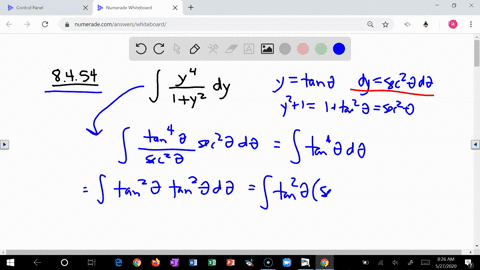 Control Panel
Numerade Whiteboard
numerade.com/answers/whiteboard/
8.4.54 ∫ y⁴/(1+y²) dy y = tanθ dy = sec²θ dθ
y²+1 = 1+tan²θ = sec²θ
∫ tan⁴θ/sec²θ sec²θ dθ = ∫ tan⁴θ dθ
= ∫ tan²θ tan²θ dθ = ∫ tan²θ (se
8:26 AM
5/27/2020